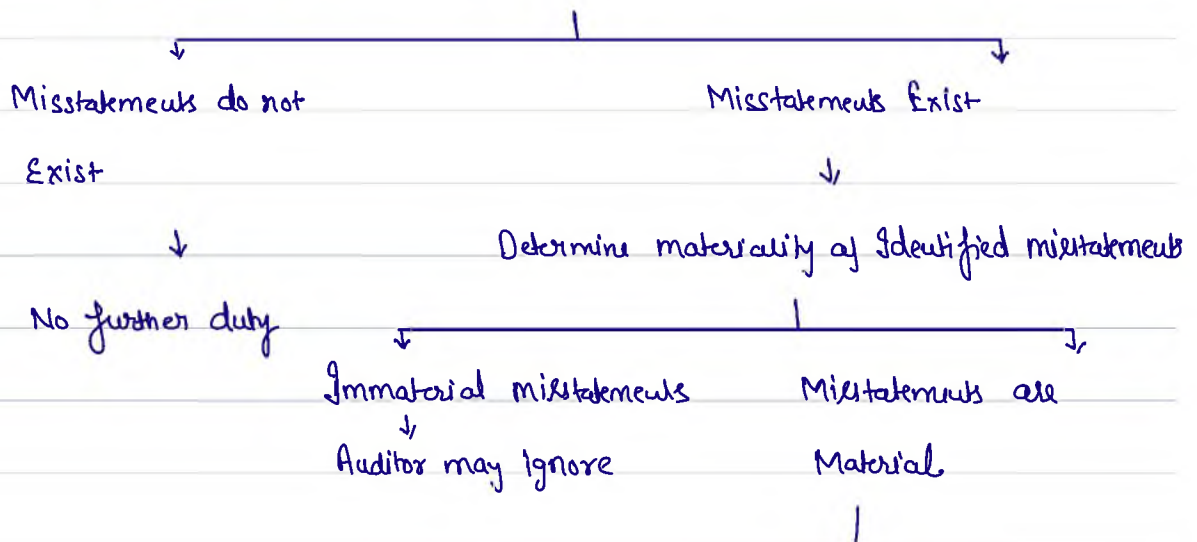 Misstatements do not
Exist
No further duty
Misstatements Exist
Determine materiality of Identified misstatements
Immaterial misstatements
Auditor may ignore
Misstatements are
Material